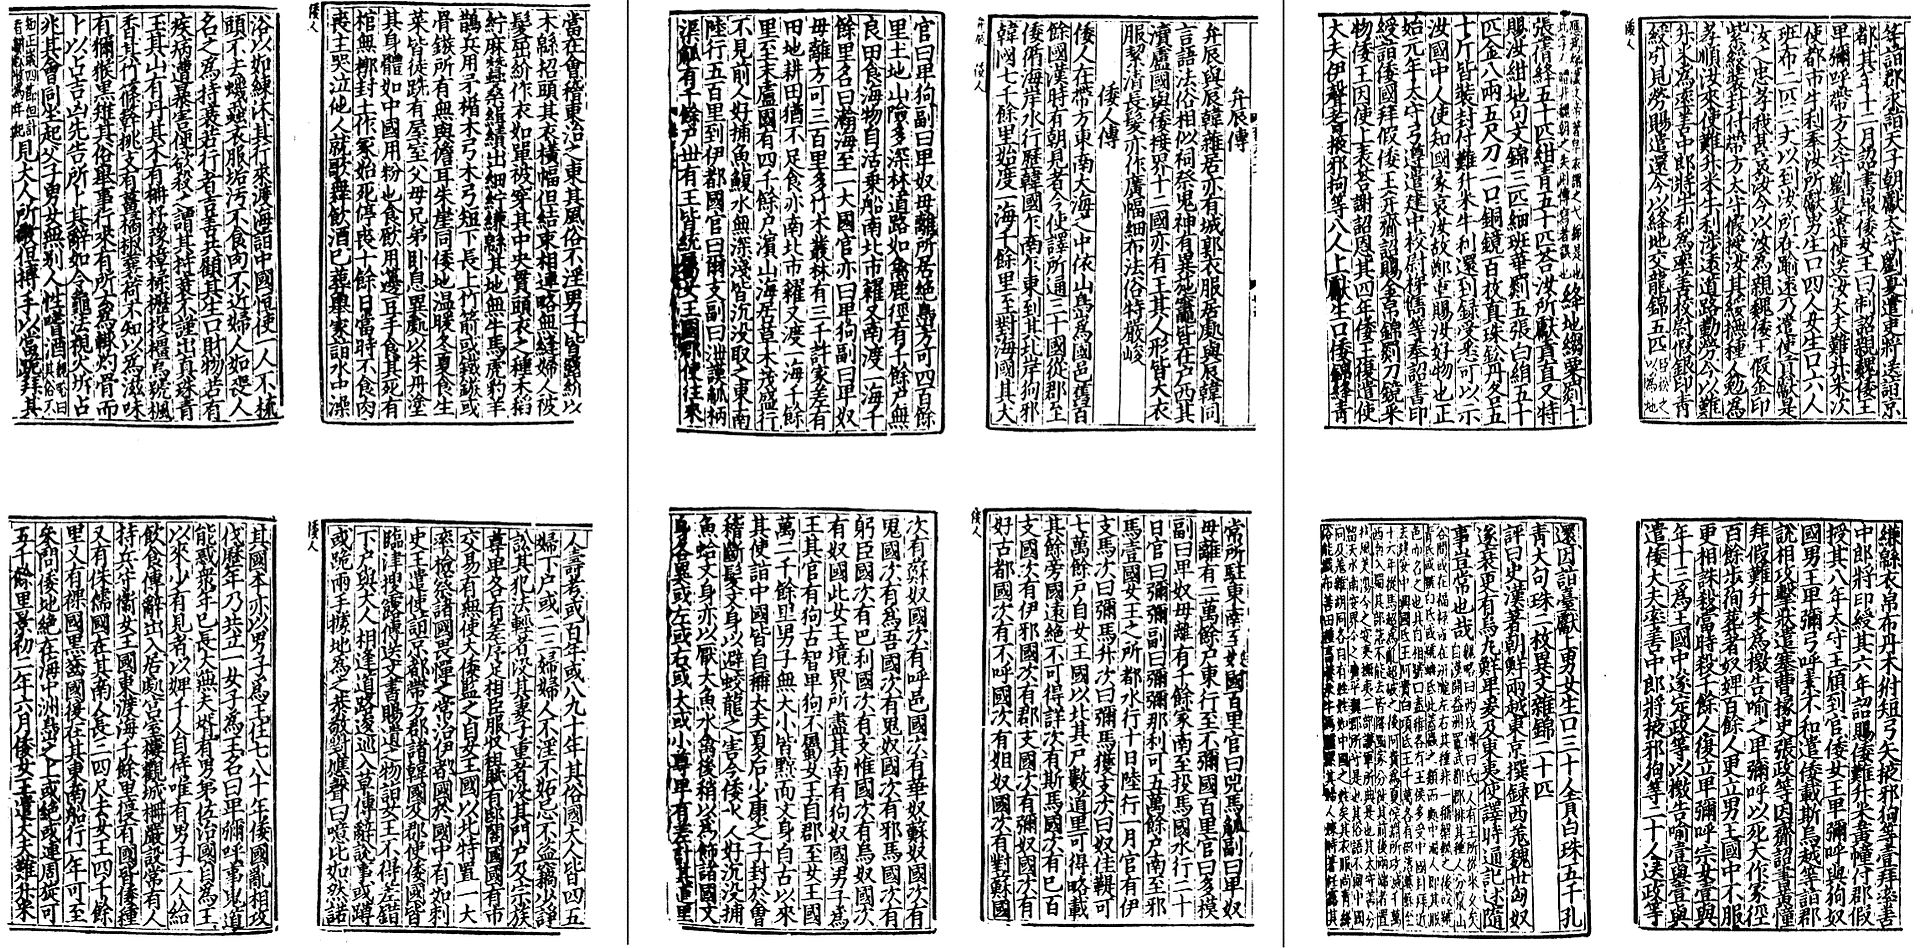 弁辰傳
弁辰與辰韓雜居亦有城郭衣服居處與辰韓同
言語法俗相似祠祭鬼神有異施竈皆在戶西其
瀆盧國與倭接界十二國亦有王其人形皆大衣
服絜清長髮亦作廣幅細布法俗特嚴峻
倭人傳
倭人在帶方東南大海之中依山㠀為國邑舊百
餘國漢時有朝見者今使譯所通三十國從郡至
倭循海岸水行歷韓國乍南乍東到其北岸狗邪
韓國七千餘里始度一海千餘里至對海國其大
官曰卑狗副曰卑奴母離所居絶㠀方可四百餘
里土地山險多深林道路如禽鹿徑有千餘戶無
良田食海物自活乗船南北市糴又南渡一海千
餘里名曰瀚海至一大國官亦曰卑狗副曰卑奴
母離方可三百里多竹木叢林有三千許家差有
田地耕田猶不足食亦南北市糴又度一海千餘
里至末盧國有四千餘戶濱山海居草木茂盛行
不見前人好捕魚鰒水無深淺皆沉沒取之東南
陸行五百里到伊都國官曰爾支副曰泄謨觚柄
渠觚有千餘戶丗有王皆統屬女王國郡使往來
常所駐東南至奴國百里官曰兕馬觚副曰卑奴
母離有二萬餘戶東行至不彌國百里官曰多模
副曰卑奴母離有千餘家南至投馬國水行二十
日官曰彌彌副曰彌彌那利可五萬餘戶南至邪
馬壹國女王之所都水行十日陸行一月官有伊
支馬次曰彌馬升次曰彌馬獲支次曰奴佳鞮可
七萬餘戶自女王國以北其戶數道里可得略載
其餘旁國遠絶不可得詳次有斯馬國次有巳百
支國次有伊邪國次有郡支國次有彌奴國次有
好古都國次有不呼國次有姐奴國次有對蘇國
次有蘇奴國次有呼邑國次有華奴蘇奴國次有
鬼國次有為吾國次有鬼奴國次有邪馬國次有
躬臣國次有巴利國次有支惟國次有烏奴國次
有奴國此女王境界所盡其南有狗奴國男子為
王其官有狗古智卑狗不屬女王自郡至女王國
萬二千餘里男子無大小皆黥面文身自古以來
其使詣中國皆自稱大夫夏后少康之子封於會
稽斷髮文身以避蛟龍之害今倭水人好沉沒捕
魚蛤文身亦以厭大魚水禽後稍以為飾諸國文
身各異或左或右或大或小尊卑有差計其道里
當在會稽東治之東其風俗不淫男子皆露紒以
木緜招頭其衣橫幅但結束相連略無縫婦人被
髮屈紒作衣如單被穿其中央貫頭衣之種禾稻
紵麻蠶桑緝績出細紵縑緜其地無牛馬虎豹羊
鵲兵用矛楯木弓木弓短下長上竹箭或鐵鏃或
骨鏃所有無與儋耳朱崖同倭地溫暖冬夏食生
菜皆徒跣有屋室父母兄弟臥息異處以朱丹塗
其身體如中國用粉也食飲用籩豆手食其死有
棺無槨封土作冢始死停喪十餘日當時不食肉
喪主哭泣他人就歌舞飲酒已葬舉家詣水中澡
浴以如練沐其行來渡海詣中國恆使一人不梳
頭不去蟣蝨衣服垢污不食肉不近婦人如喪人
名之為持衰若行者吉善共顧其生口財物若有
疾病遭暴害便欲殺之謂其持衰不謹出真珠青
玉其山有丹其木有柟杼豫樟楺櫪投橿烏號楓
香其竹篠簳桃支有薑橘椒蘘荷不知以為滋味
有獮猴黑雉其俗舉事行來有所云為輒灼骨而
卜以占吉凶先告所卜其辭如令龜法視火坼占
兆其會同坐起父子男女無別人性嗜酒
見大人所敬但搏手以當跪拜其
人壽考或百年或八九十年其俗國大人皆四五
婦下戶或二三婦婦人不淫不妒忌不盜竊少諍
訟其犯法輕者沒其妻子重者沒其門戶及宗族
尊卑各有差序足相臣服收租賦有邸閣國國有市
交易有無使大倭監之自女王國以北特置一大
率檢察諸國諸國畏憚之常治伊都國於國中有如刺
史王遣使詣京都帶方郡諸韓國及郡使倭國皆
臨津搜露傳送文書賜遺之物詣女王不得差錯
下戶與大人相逢道路逡巡入草傳辭說事或蹲
或跪兩手據地為之恭敬對應聲曰噫比如然諾
其國本亦以男子為王住七八十年倭國亂相攻
伐歷年乃共立一女子為王名曰卑彌呼事鬼道
能惑衆年已長大無夫壻有男弟佐治國自為王
以來少有見者以婢千人自侍唯有男子一人給
飲食傳辭出入居處宮室樓觀城柵嚴設常有人
持兵守衛女王國東渡海千餘里復有國皆倭種
又有侏儒國在其南人長三四尺去女王四千餘
里又有裸國黑齒國復在其東南船行一年可至
參問倭地絶在海中洲㠀之上或絶或連周旋可
五千餘里景初二年六月倭女王遣大夫難升米
等詣郡求詣天子朝獻太守劉夏遣吏將送詣京
都其年十二月詔書報倭女王曰制詔親魏倭王
卑彌呼帶方太守劉夏遣使送汝大夫難升米次
使都市牛利奉汝所獻男生口四人女生口六人
班布二匹二丈以到汝所在踰遠乃遣使貢獻是
汝之忠孝我甚哀汝今以汝為親魏倭王假金印
紫綬裝封付帶方太守假授汝其綏撫種人勉為
孝順汝來使難升米牛利涉遠道路勤勞今以難
升米為率善中郎將牛利為率善校尉假銀印青
綬引見勞賜遣還今以絳地交龍錦五匹
絳地縐粟罽十
張蒨絳五十匹紺青五十匹答汝所獻貢直又特
賜汝紺地句文錦三匹細班華罽五張白絹五十
匹金八兩五尺刀二口銅鏡百枚真珠鉛丹各五
十斤皆裝封付難升米牛利還到錄受悉可以示
汝國中人使知國家哀汝故鄭重賜汝好物也正
始元年太守弓遵遣建中校尉梯儁等奉詔書印
綬詣倭國拜假倭王并齎詔賜金帛錦罽刀鏡采
物倭王因使上表答謝詔恩其四年倭王復遣使
大夫伊聲耆掖邪狗等八人上獻生口倭錦絳青
縑緜衣帛布丹木𤝔短弓矢掖邪狗等壹拜率善
中郎將印綬其六年詔賜倭難升米黃幢付郡假
授其八年太守王頎到官倭女王卑彌呼與狗奴
國男王卑彌弓呼素不和遣倭載斯烏越等詣郡
說相攻擊狀遣塞曹掾史張政等因齎詔書黃幢
拜假難升米為檄告喻之卑彌呼以死大作冢徑
百餘步徇葬者奴婢百餘人更立男王國中不服
更相誅殺當時殺千餘人復立卑彌呼宗女壹與
年十三為王國中遂定政等以檄告喻壹與壹與
遣倭大夫率善中郎將掖邪狗等二十人送政等
還因詣臺獻上男女生口三十人貢白珠五千孔
青大句珠二枚異文雜錦二十匹
評曰史漢著朝鮮兩越東京撰錄西羌魏世匈奴
遂衰更有烏丸鮮卑爰及東夷使譯時通記述隨
事豈常也哉